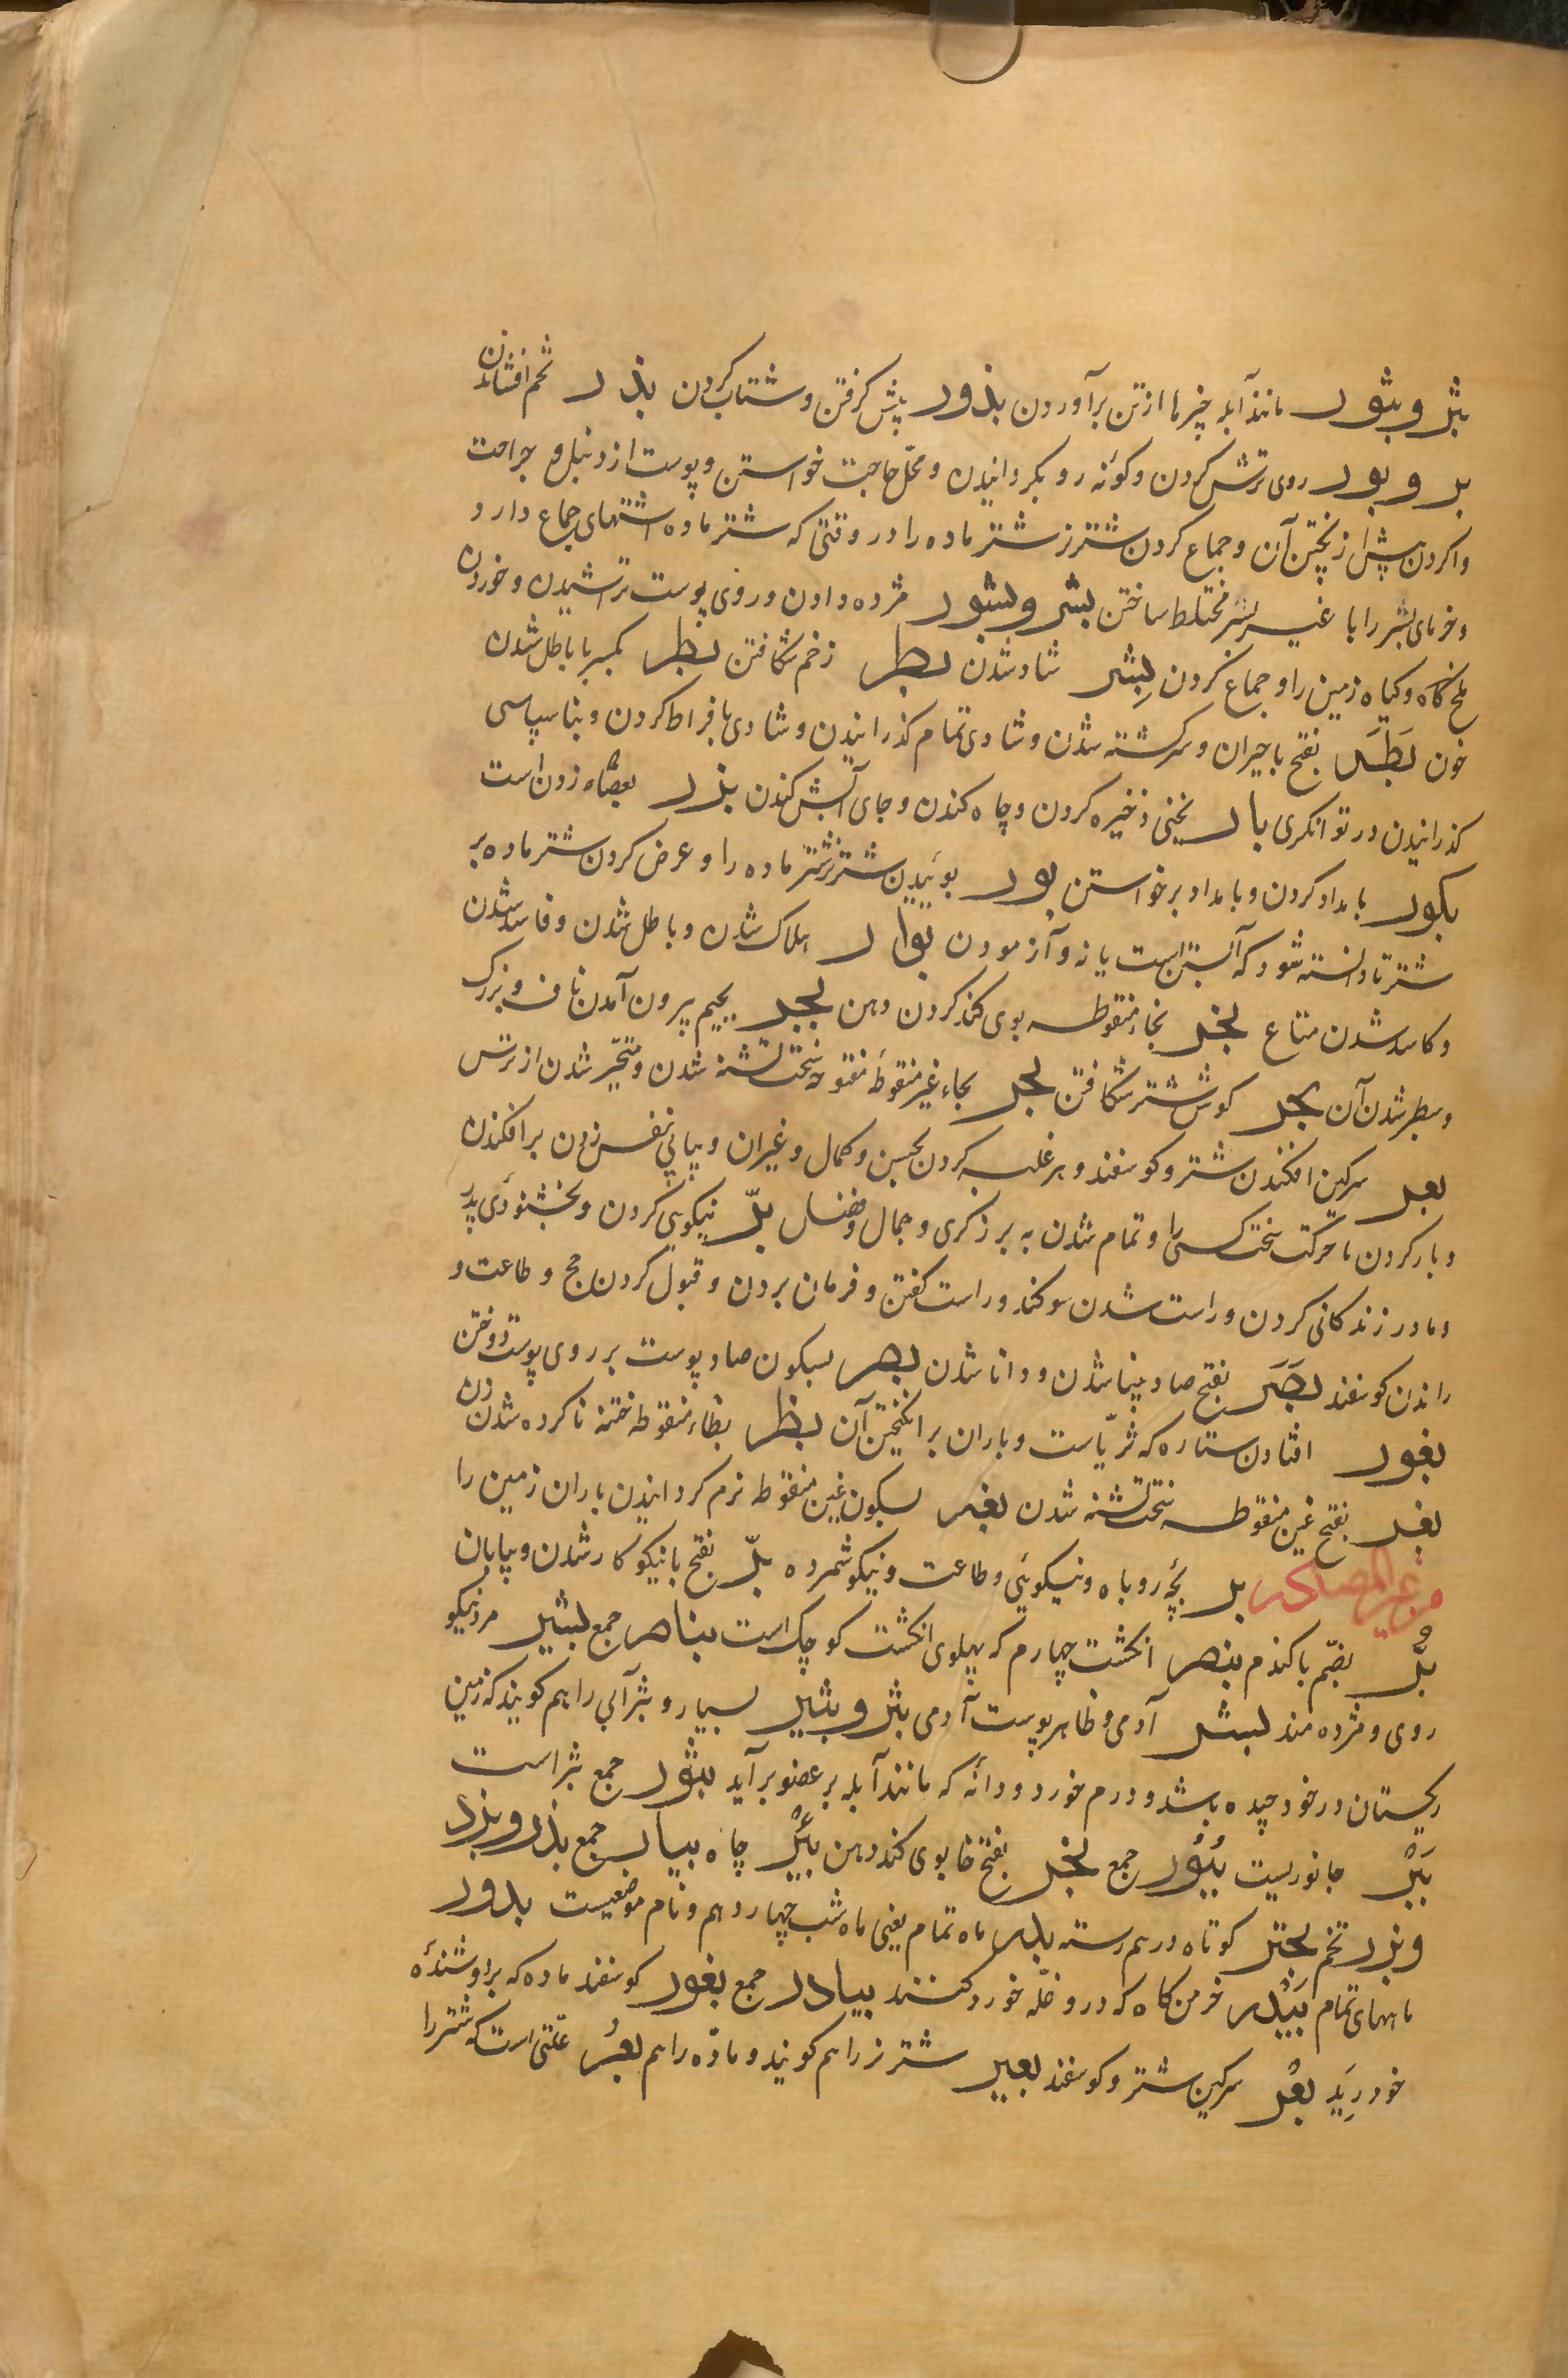 بثر و بثور مانند آبله چیزها از تن برآوردن بذور پیش گرفتن و شتاب کردن بذر تخم افشاندن
بسر و بسور روی ترش کردن و کونه رو بکردانیدن و محل حاجت خواستن و پوست از دنبل و جراحت
واکردن پیش از پختن آن و جماع کردن شتر نر شتر ماده را در وقتی که شتر ماده اشتهای جماع دارد
و خرمای بسر را با غیر بسر مختلط ساختن بشر و بشور مژده دادن و روی پوست تراشیدن و خوردن
ملخ کاه و کیاه زمین را و جماع کردن بشر شاد شدن بطر زخم شکافتن بطر بکسر با باطل شدن
خون بطر بفتح با حیران و سرکشته شدن و شادی تمام گذرانیدن و شادی بافراط کردن و بناسپاسی
کذرانیدن در توانکری بار نخینی ذخیره کردن و چاه کندن و جای آتش کندن بزر بعصاه زدن است
بکور بامداد کردن و بامداد برخواستن بور بوئیدن شتر نر شتر ماده را و عرض کردن شتر ماده بر
شتر تا دانسته شود که آبستن است یا نه و آزمودن بوار هلاک شدن و باطل شدن و فاسد شدن
و کاسد شدن متاع بخر بخاء منقوطه بوی کند کردن دهن بجر بجیم بیرون آمدن ناف و بزرک
و سطبر شدن آن بحر کوش شتر شکافتن بحر بحاء غیر منقوطه مفتوحه سخت تشنه شدن و متحیر شدن از ترس
بعر سرکین افکندن شتر و کوسفند و بهر غلبه کردن بحسن و کمال و غیر آن و پیاپی نفس زدن برافکندن
و بار کردن با حرکت سخت کسی را و تمام شدن به بزرکری و جمال و فضل برّ نیکویی کردن و بخشنودی پدر
و مادر زندکانی کردن و راست شدن سوکند و راست کفتن و فرمان بردن و قبول کردن حج و طاعت و
راندن کوسفند بصر بفتح صاد بینا شدن و دانا شدن بصر بسکون صاد پوست بر روی پوست دوختن
بغور افتادن ستاره که ثریّاست و باران برانکیختن آن بظر بظاء منقوطه ختنه ناکرده شدن زن
بغر بفتح غین منقوطه سخت تشنه شدن بغر بسکون غین منقوطه نرم کردانیدن باران زمین را
من غیر المصادر بر بچّه روباه و نیکویی و طاعت و نیکو شمرده برّ بفتح با نیکوکار شدن و بیابان
بُرّ بضمّ با کندم بنصر انکشت چهارم که پهلوی انکشت کوچک است بناصر جمع بشیر مرد نیکو
روی و مژده مند بشر آدمی و ظاهر پوست آدمی بثر و بثیر بسیار و بثر آبی را هم کویند که زمین
ریکستان در خود چیده باشد و درم خورد و دانه که مانند آبله بر عضو برآید بثور جمع بثر است
بَبْر جانوریست بُبُور جمع بخر بفتح خا بوی کند دهن بئر چاه بیار جمع بذر و بزر
و بزر تخم بحتر کوتاه درهم رسته بدر ماه تمام یعنی ماه شب چهاردهم و نام موضعیست بدور
ماههای تمام بَیْدر خرمن کاه که درو غلّه خورد کنند بیادر جمع بغور کوسفند ماده که بر او شنده
خود رید بعر سرکین شتر و کوسفند بعیر شتر نر را هم کویند و مادّه را هم بغر علّتی است که شتر را